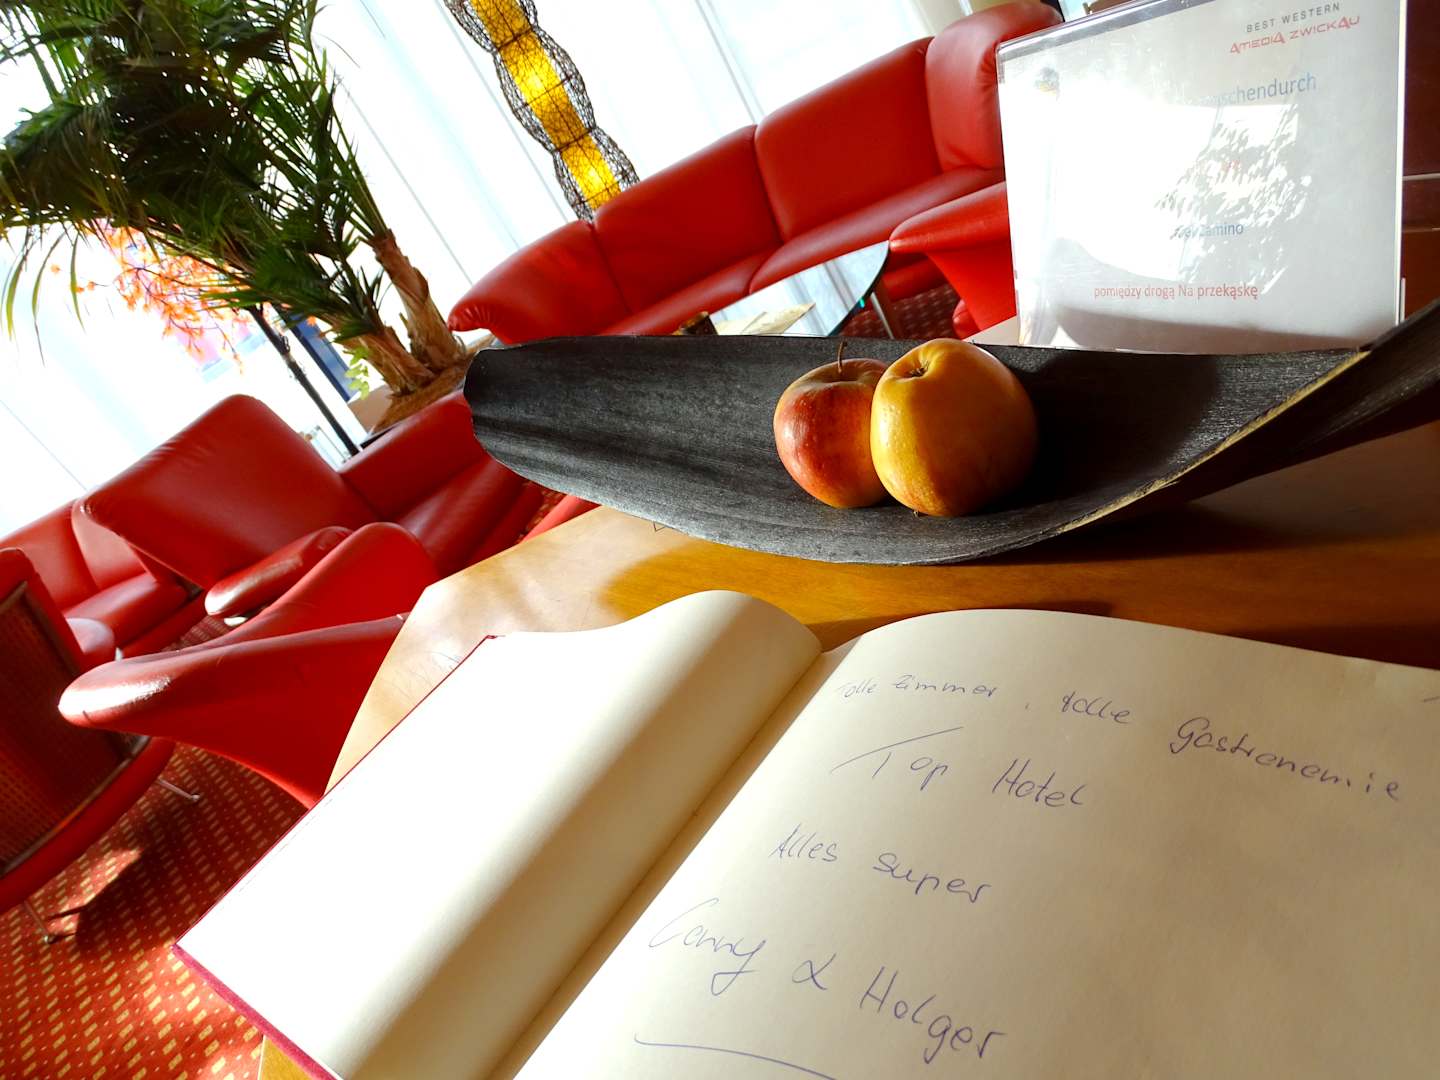 BEST WESTERN
AMEDIA ZWICKAU
schendurch
pomiędzy drogą Na przekąskę
tolle Zimmer, tolle Gastronomie
Top Hotel
Alles super
Conny & Holger